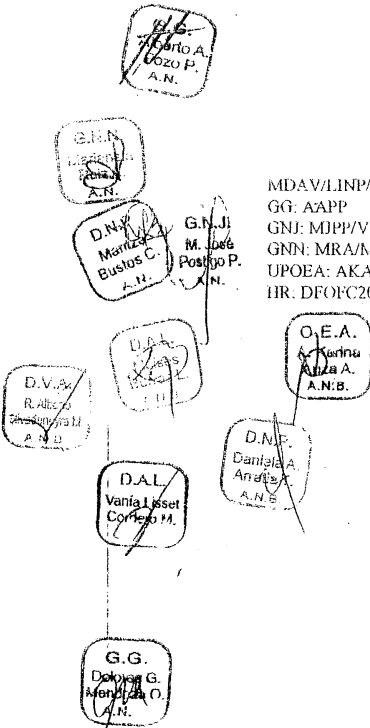 G.G.
Alberto A.
Pozo P.
A.N.
G.N.N.
A.N.
D.N.P.
Bustos C.
A.N.
G.N.J.
M. José
Postigo P.
A.N.
MDAV/LINP/
GG: AAPP
GNJ: MJPP/V
GNN: MRA/M
UPOEA: AKA
HR. DFOFC20
D.A.L.
O.E.A.
A. Karina
Ariza A.
A.N.B.
D.V.A.
R. Alberto
D.N.P.
Daniela A.
A.N.B
D.A.L.
Vania Lisset
Cornejo M.
G.G.
Dolores G.
Mendoza O.
A.N.